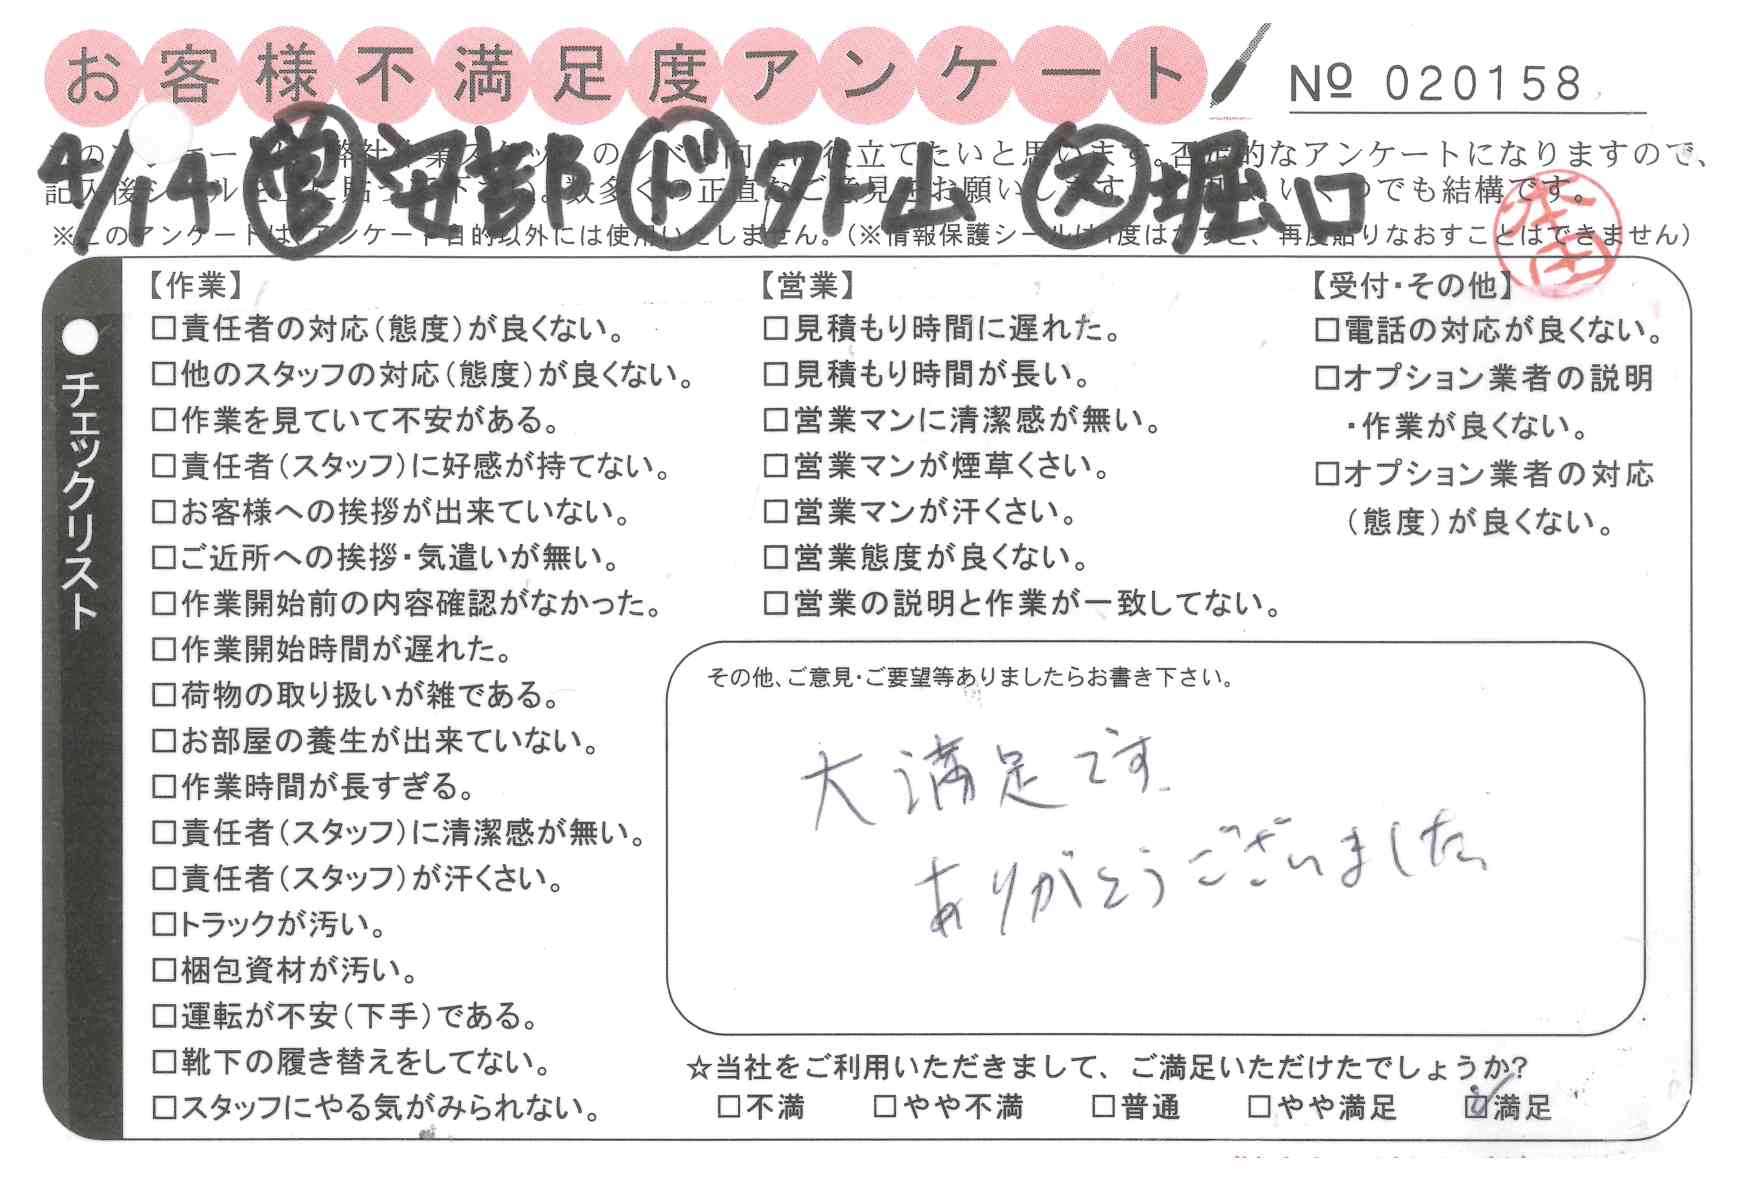 お客様不満足度アンケート
№ 020158
4/14 営 安部 ド 外山 ス 堀口
このアンケート 弊社 スタッフのレベル向上に役立てたいと思います。否定的なアンケートになりますので、
記入後シール に貼って下さい。数多くの正直なご意見をお願いします いくつでも結構です。
※このアンケートは、アンケート目的以外には使用いたしません。（※情報保護シールは1度はがすと、再度貼りなおすことはできません）
本田
●チェックリスト
【作業】
□責任者の対応（態度）が良くない。
□他のスタッフの対応（態度）が良くない。
□作業を見ていて不安がある。
□責任者（スタッフ）に好感が持てない。
□お客様への挨拶が出来ていない。
□ご近所への挨拶・気遣いが無い。
□作業開始前の内容確認がなかった。
□作業開始時間が遅れた。
□荷物の取り扱いが雑である。
□お部屋の養生が出来ていない。
□作業時間が長すぎる。
□責任者（スタッフ）に清潔感が無い。
□責任者（スタッフ）が汗くさい。
□トラックが汚い。
□梱包資材が汚い。
□運転が不安（下手）である。
□靴下の履き替えをしてない。
□スタッフにやる気がみられない。
【営業】
□見積もり時間に遅れた。
□見積もり時間が長い。
□営業マンに清潔感が無い。
□営業マンが煙草くさい。
□営業マンが汗くさい。
□営業態度が良くない。
□営業の説明と作業が一致してない。
【受付・その他】
□電話の対応が良くない。
□オプション業者の説明
・作業が良くない。
□オプション業者の対応
（態度）が良くない。
その他、ご意見・ご要望等ありましたらお書き下さい。
大満足です
ありがとうございました。
☆当社をご利用いただきまして、ご満足いただけたでしょうか?
□不満 □やや不満 □普通 □やや満足 ☑満足